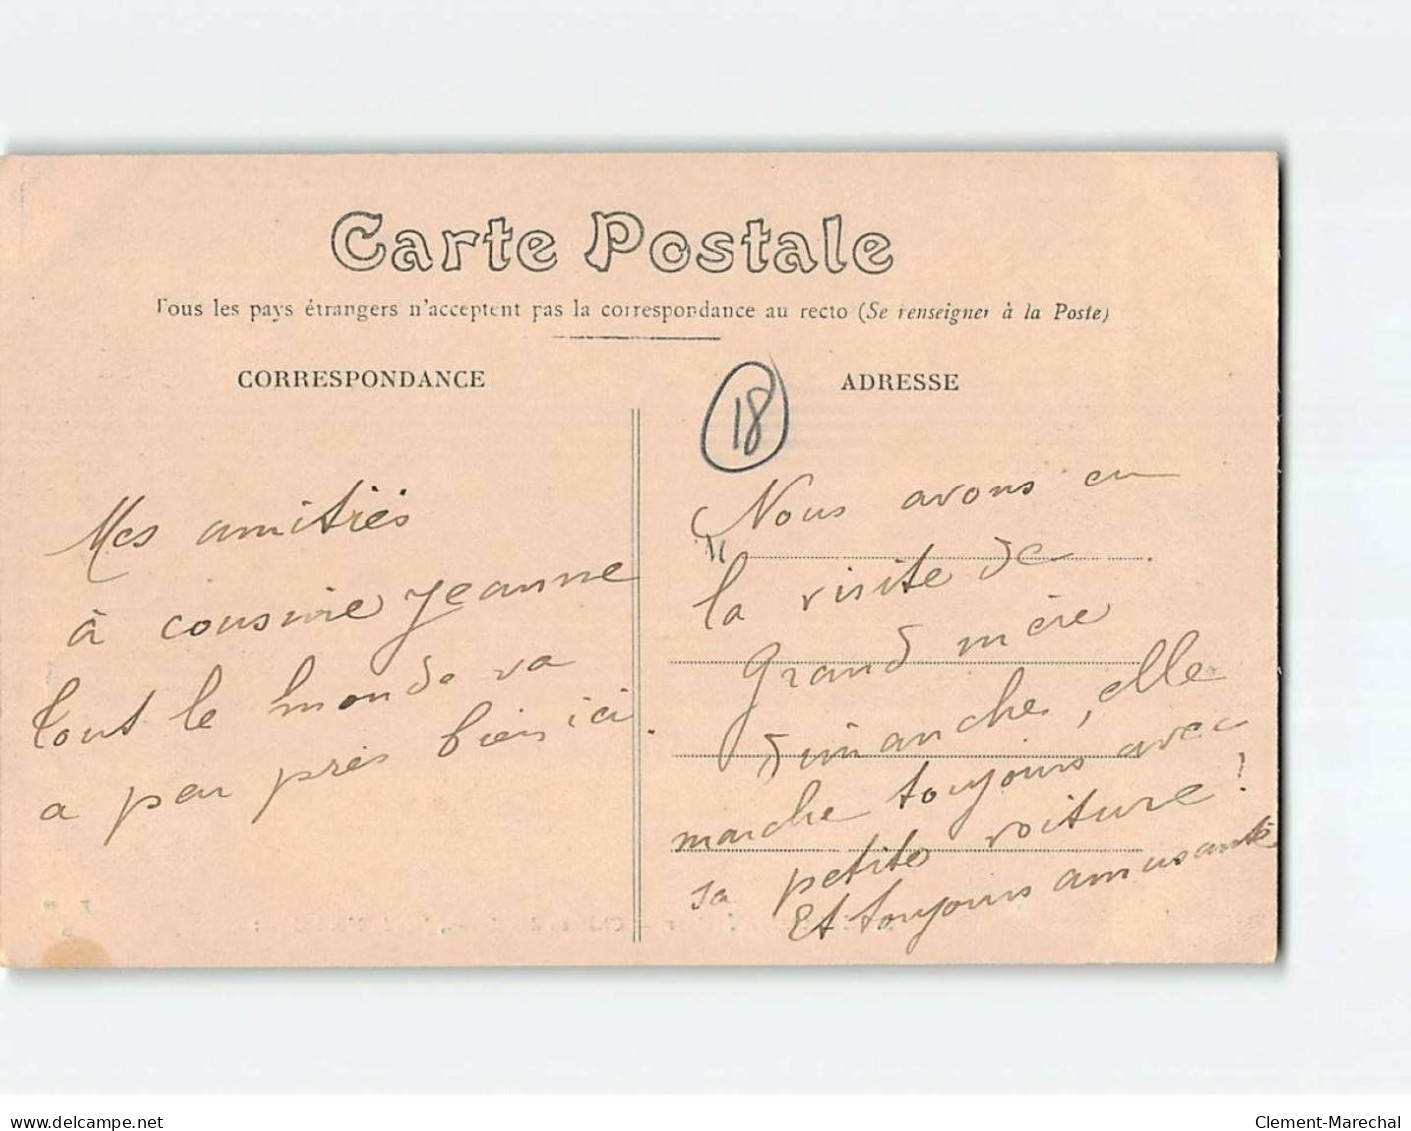 Carte Postale
Tous les pays étrangers n'acceptent pas la correspondance au recto (Se renseigner à la Poste)
CORRESPONDANCE
ADRESSE
18
Mes amitiés
à cousine Jeanne
tout le monde va
a peu près bien ici.
Nous avons eu
la visite de
Grand mère
dimanche, elle
marche toujours avec
sa petite voiture!
Et toujours amusante
delcampe.net
Clement-Marechal